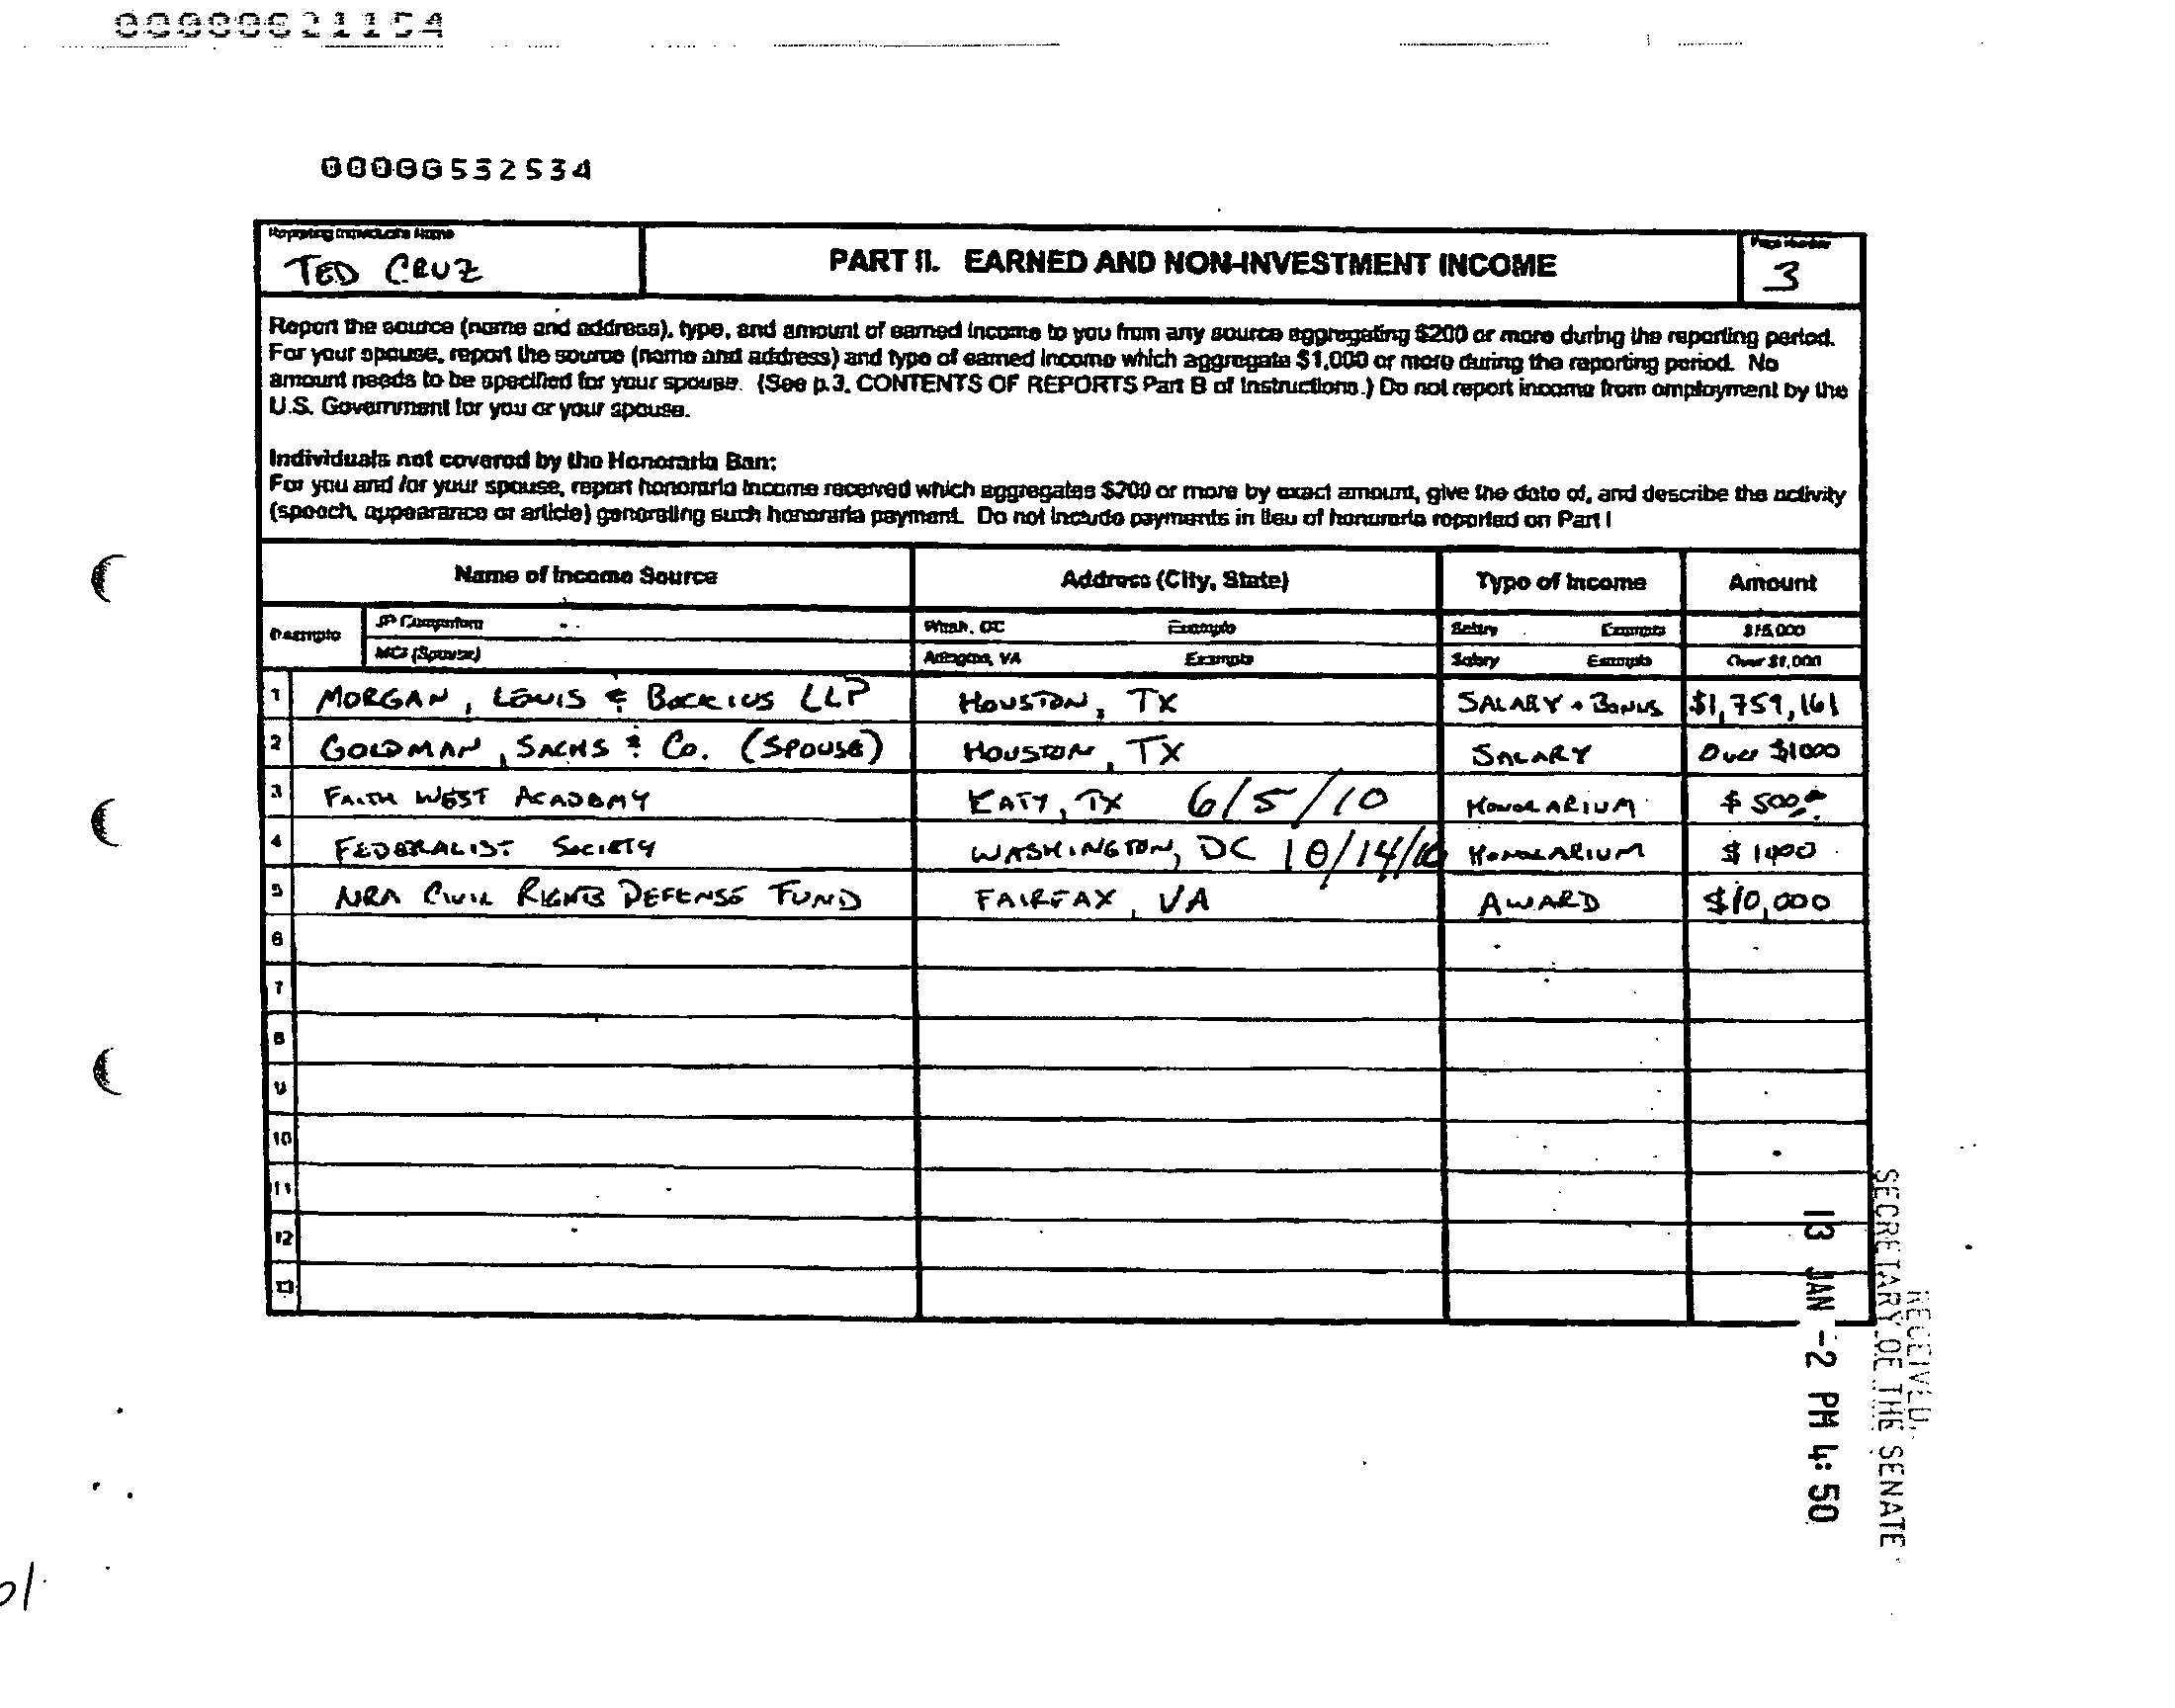 00000532534
Reporting Individual's Name
TED CRUZ
PART II. EARNED AND NON-INVESTMENT INCOME
Page Number
3
Report the source (name and address), type, and amount of earned income to you from any source aggregating $200 or more during the reporting period.
For your spouse, report the source (name and address) and type of earned income which aggregate $1,000 or more during the reporting period. No
amount needs to be specified for your spouse. (See p.3, CONTENTS OF REPORTS Part B of Instructions.) Do not report income from employment by the
U.S. Government for you or your spouse.
Individuals not covered by the Honoraria Ban:
For you and /or your spouse, report honoraria income received which aggregates $200 or more by exact amount, give the date of, and describe the activity
(speech, appearance or article) generating such honoraria payment. Do not include payments in lieu of honoraria reported on Part I
Name of Income Source Address (City, State) Type of Income Amount
Example JP Computers Wash, DC Example Salary Example $15,000
MCI (Spouse) Arlington, VA Example Salary Example Over $1,000
1 MORGAN, LEWIS & BOCKIUS LLP HOUSTON, TX SALARY + BONUS $1,759,161
2 GOLDMAN, SACHS & CO. (SPOUSE) HOUSTON, TX SALARY Over $1000
3 FAITH WEST ACADEMY KATY, TX 6/5/10 HONORARIUM $500
4 FEDERALIST SOCIETY WASHINGTON, DC 10/14/10 HONORARIUM
5 NRA CIVIL RIGHTS DEFENSE FUND FAIRFAX, VA AWARD $10,000
6
7
8
9
10
11
12
13
RECEIVED
SECRETARY OF THE SENATE
13 JAN -2 PM 4:50